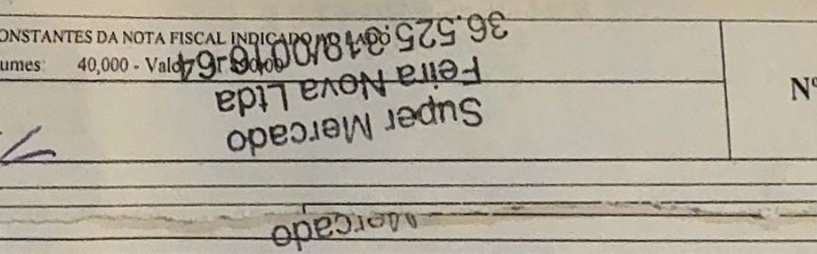 ONSTANTES DA NOTA FISCAL INDICADO AO LADO
umes: 40,000 - Valor
Nº
Super Mercado
Feira Nova Ltda
36.525.318/0016-64
Mercado